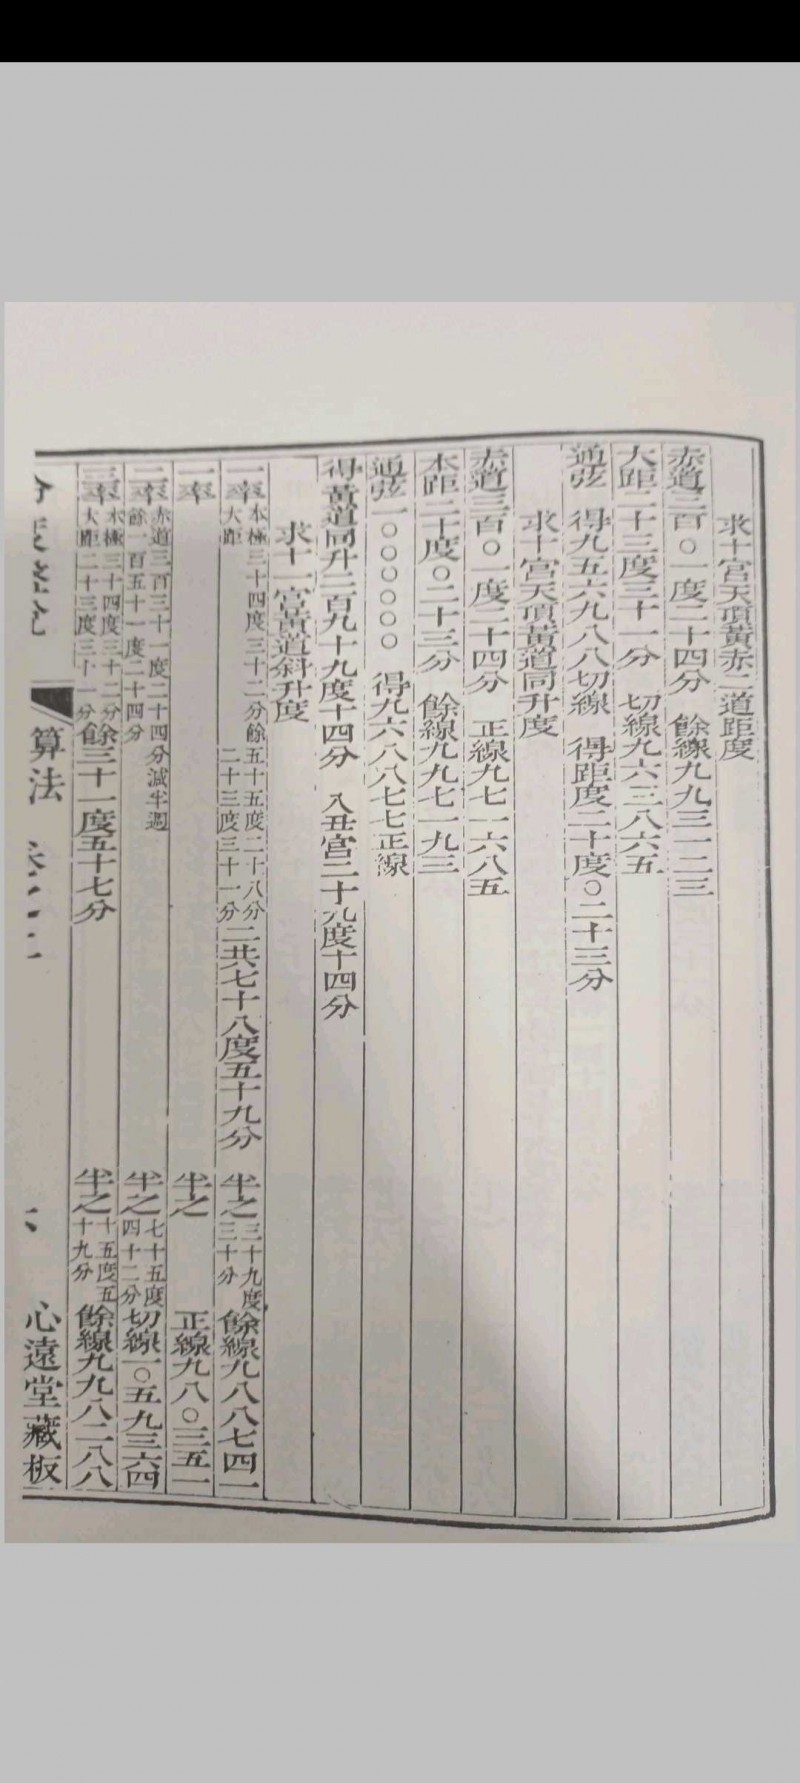 求十宮天頂黃赤二道距度
赤道三百〇一度二十四分　餘線九九三一二三
大距二十三度三十一分　切線九六三八六五
通弦　得九五六九八八切線　得距度二十度〇二十三分
求十宮天頂黃道同升度
赤道三百〇一度二十四分　正線九七一六八五
本距二十度〇二十三分　餘線九九七一九三
通弦一〇〇〇〇〇〇　得九六八八七七正線
得黃道同升二百九十九度十四分　入丑宮二十九度十四分
求十一宮黃道斜升度
一率 本極三十四度三十二分餘五十五度二十八分 大距 二十三度三十一分 二共七十八度五十九分 半之 三十九度三十分 餘線九八八七四一
一率 半之 正線九八〇三五一
二率 赤道三百三十一度二十四分減半週 餘一百五十一度二十四分 半之 七十五度四十二分 切線一〇五九三六四
三率 本極三十四度三十二分 大距二十三度三十一分 餘三十一度五十七分 半之 十五度五十九分 餘線九九八二八八
算法
心遠堂藏板